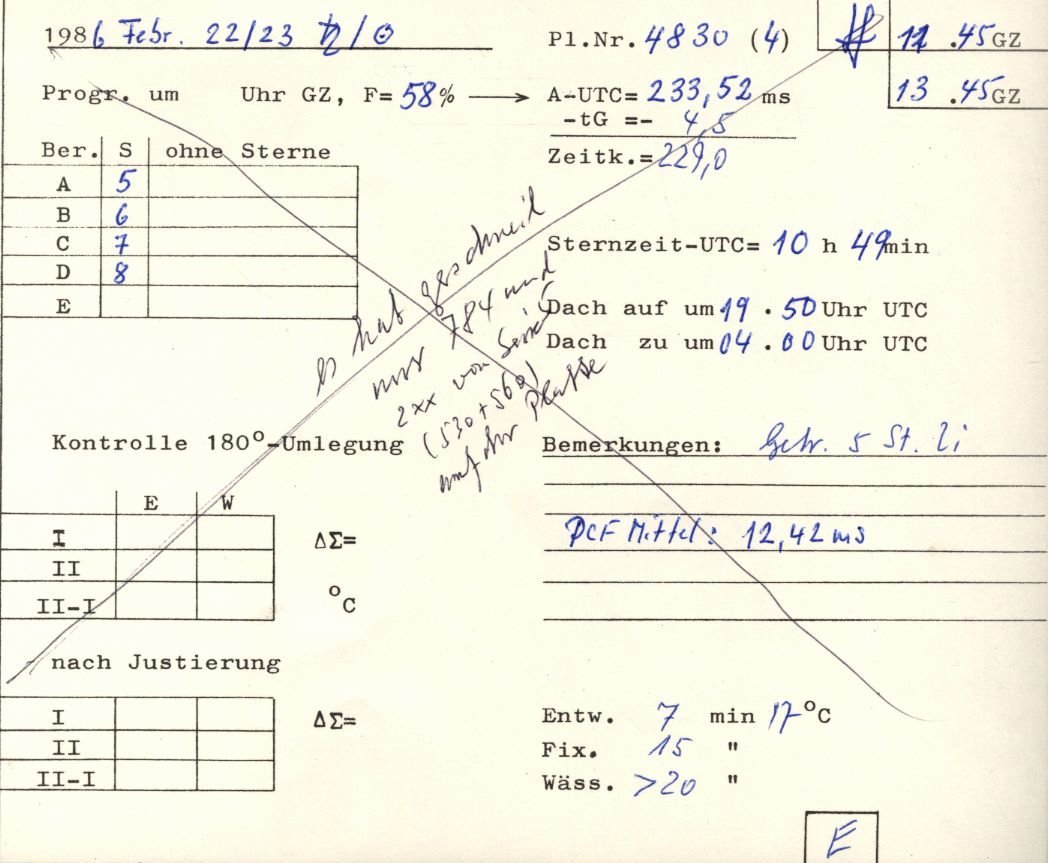 1986 Febr. 22/23 ♄/☉
Pl.Nr. 4830 (4)
11 .45GZ
13 .45GZ
Progr. um Uhr GZ, F= 58% → A-UTC= 233,52 ms
-tG =- 4,5
Zeitk.= 229,0
Ber. S ohne Sterne
A 5
B 6
C 7
D 8
E
Sternzeit-UTC= 10 h 49min
Dach auf um 19 . 50 Uhr UTC
Dach zu um 04 . 00 Uhr UTC
es hat geschneit
nur 784 und
2xx von Serie
(530+560)
auf der Platte
Kontrolle 180°-Umlegung
Bemerkungen: 5 St.
E W
I ΔΣ=
II
II-I °C
DCF Mittel: 12,42 ms
nach Justierung
I ΔΣ=
II
II-I
Entw. 7 min 17°C
Fix. 15 "
Wäss. >20 "
E